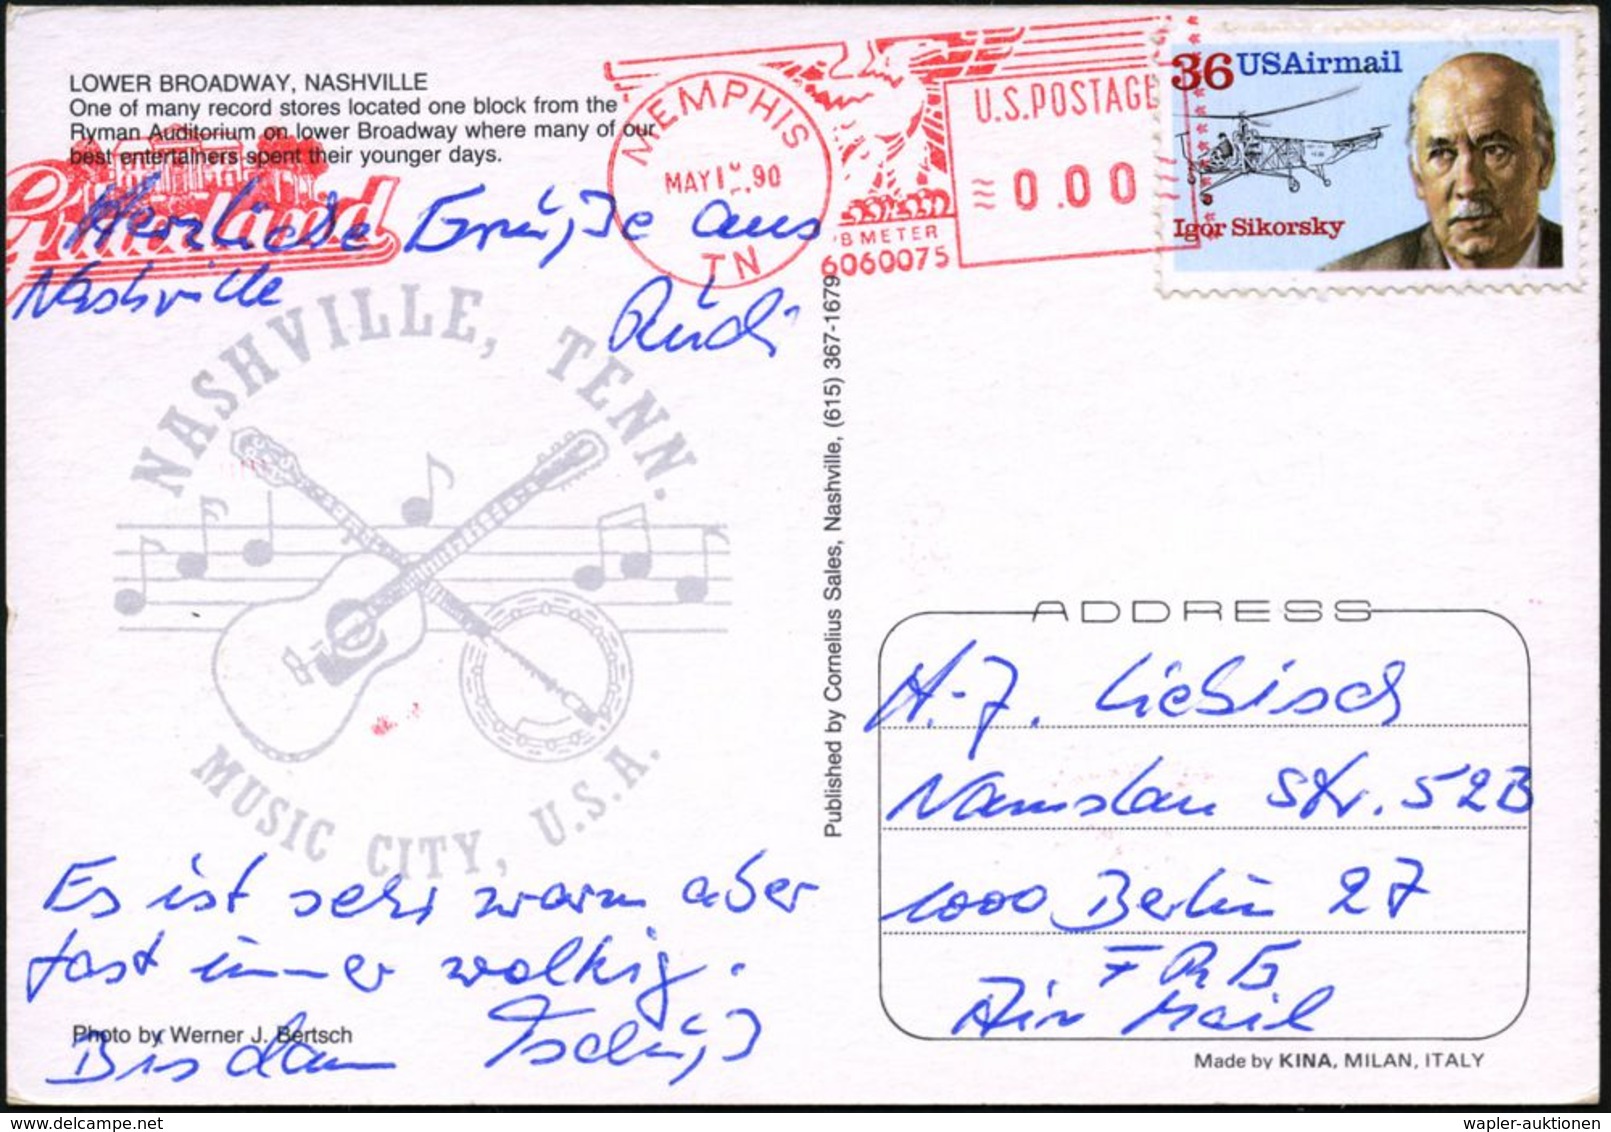 LOWER BROADWAY, NASHVILLE
One of many record stores located one block from the
Ryman Auditorium on lower Broadway where many of our
best entertainers spent their younger days.
Graceland
MEMPHIS
MAY 90
TN
U.S.POSTAGE
0.00
PB METER
6060075
36 USAirmail
Igor Sikorsky
Herzliche Grüße aus
Nashville
Rüdi
NASHVILLE, TENN.
MUSIC CITY, U.S.A.
Es ist sehr warm aber
fast immer wolkig.
Bis dann Tschüß
Photo by Werner J. Bertsch
Published by Cornelius Sales, Nashville, (615) 367-1679
ADDRESS
H.-J. Liebisch
Namslau Str. 52B
1000 Berlin 27
FRG
Air Mail
Made by KINA, MILAN, ITALY
wapler-auktionen